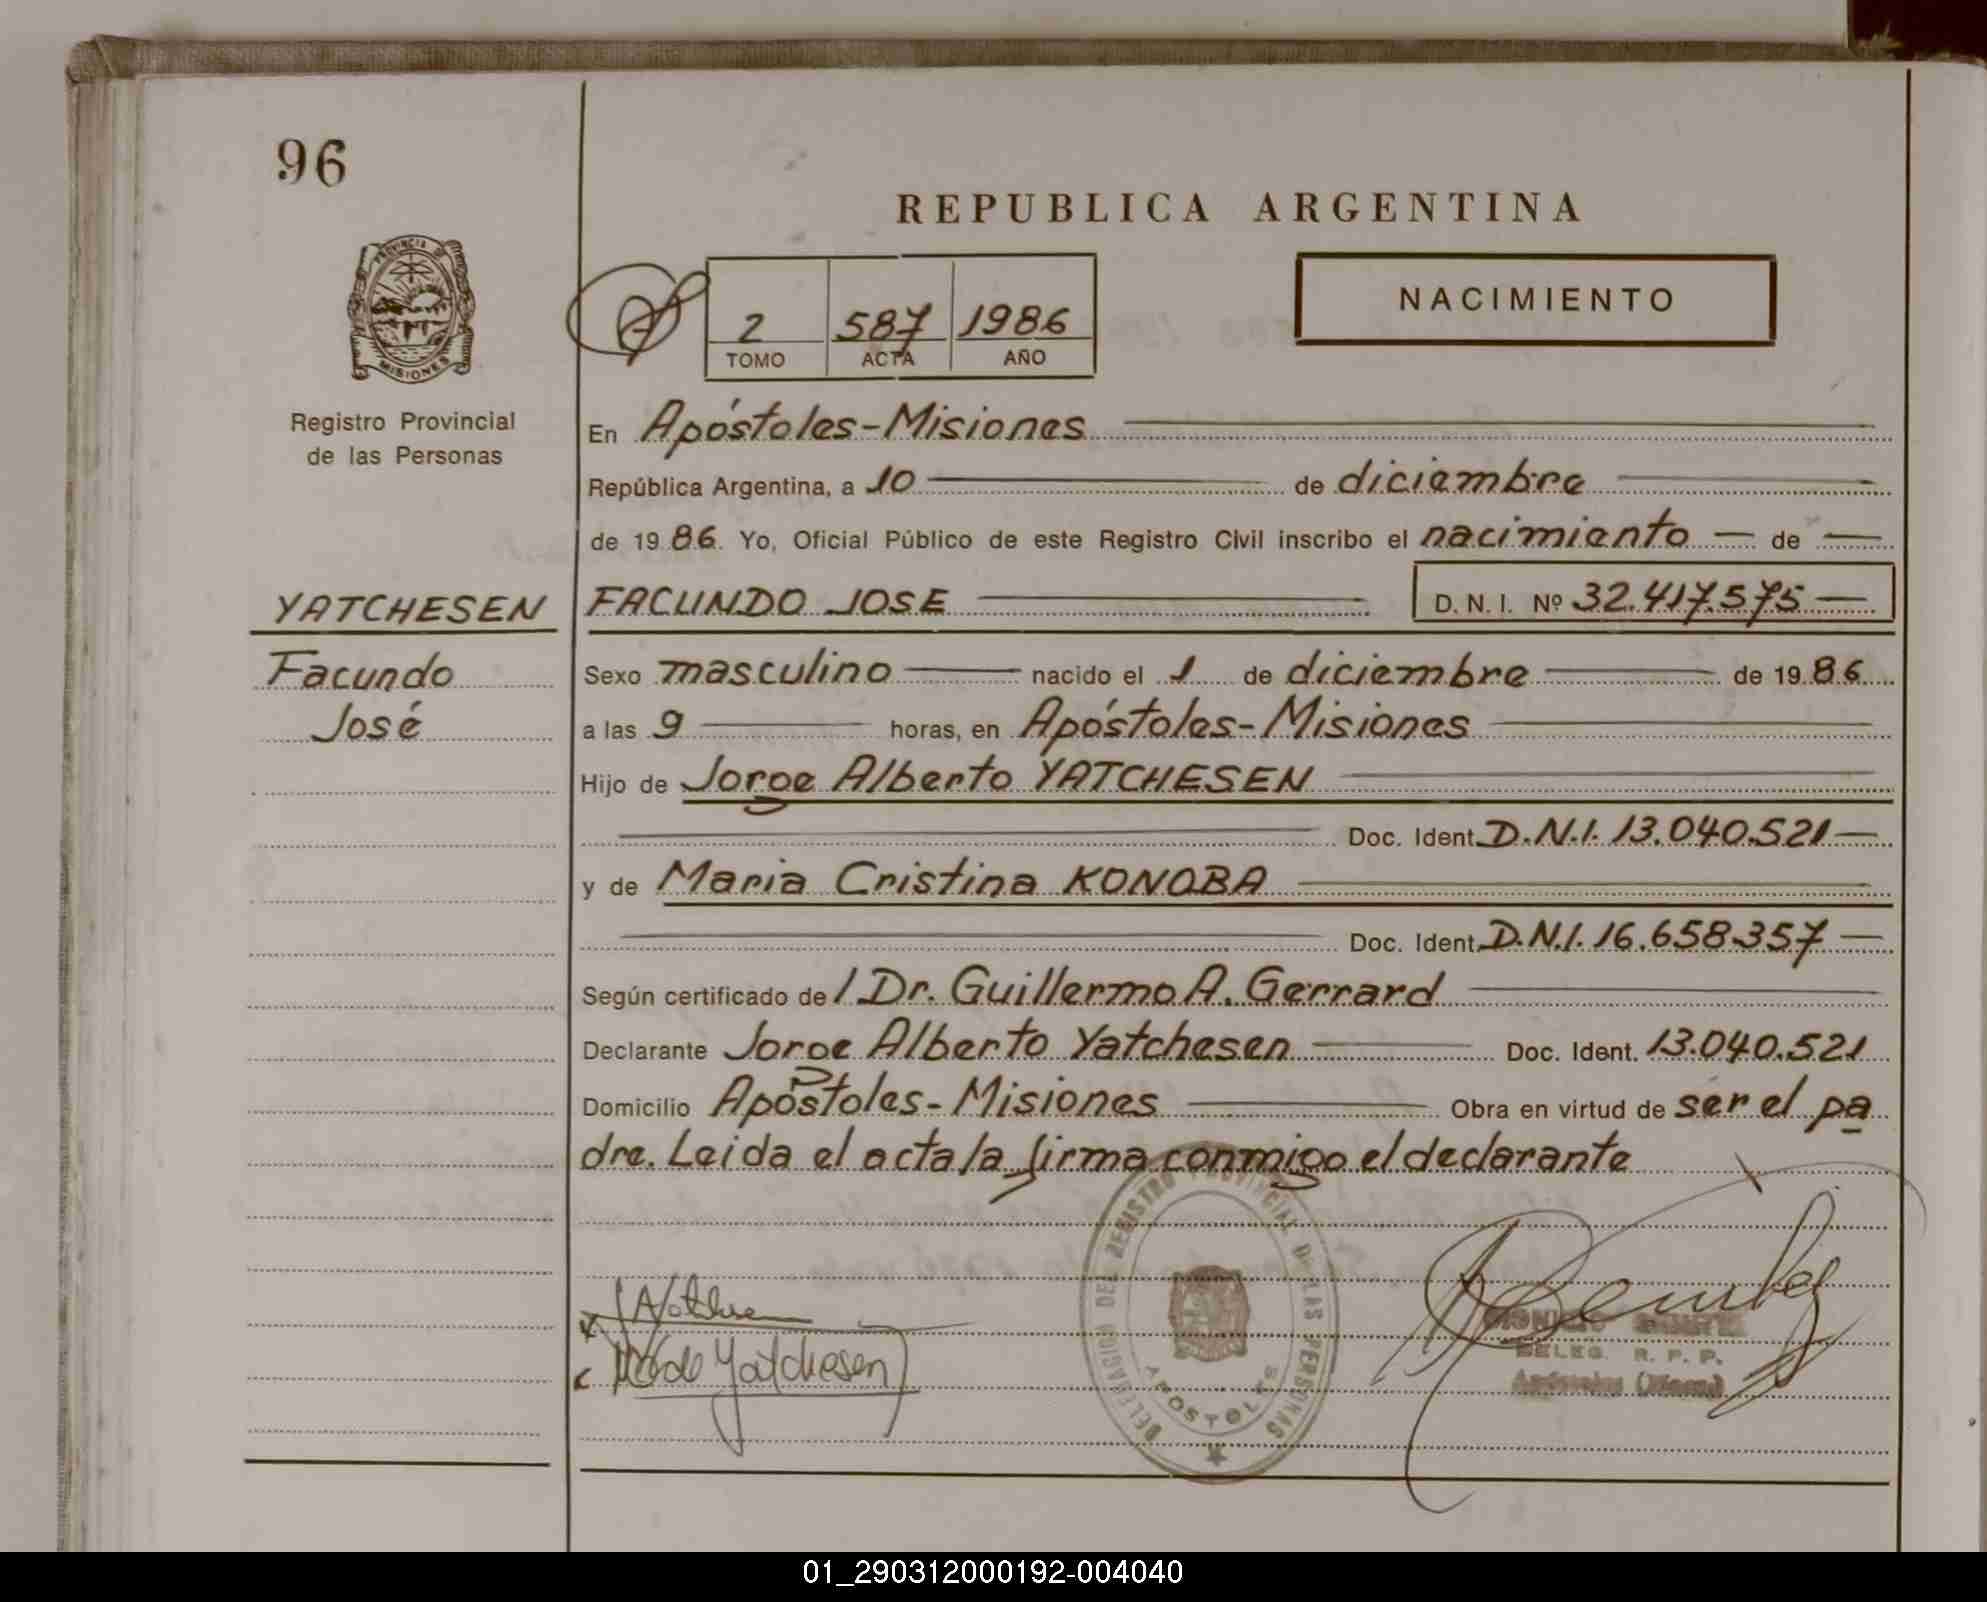 96
REPUBLICA ARGENTINA
PROVINCIA DE
MISIONES
2 587 1986
TOMO ACTA AÑO
NACIMIENTO
Registro Provincial
de las Personas
En Apóstoles-Misiones
República Argentina, a 10 de diciembre
de 1986. Yo, Oficial Público de este Registro Civil inscribo el nacimiento de
YATCHESEN FACUNDO JOSE D. N. I. Nº 32.417.575
Facundo Sexo masculino nacido el 1 de diciembre de 1986
José a las 9 horas, en Apóstoles-Misiones
Hijo de Jorge Alberto YATCHESEN
Doc. Ident. D.N.I. 13.040.521
y de Maria Cristina KONOBA
Doc. Ident. D.N.I. 16.658.357
Según certificado de/ Dr. Guillermo A. Gerrard
Declarante Jorge Alberto Yatchesen Doc. Ident. 13.040.521
Domicilio Apóstoles-Misiones Obra en virtud de ser el pa
dre. Leida el acta/a firma conmigo el declarante
DELEGACION DEL REGISTRO PROVINCIAL DE LAS PERSONAS
APOSTOLES
de Yatchesen
DELEG. R. P. P.
Apóstoles (Mnes.)
01_290312000192-004040